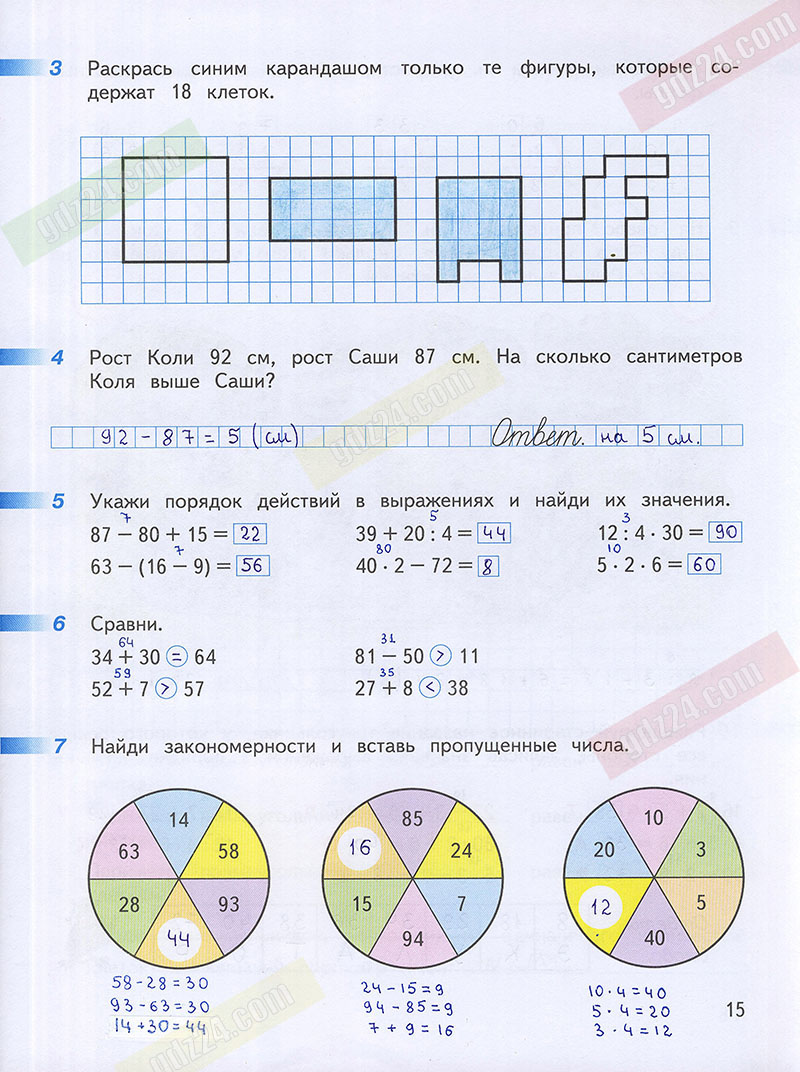 gdz24.com
3 Раскрась синим карандашом только те фигуры, которые со-
держат 18 клеток.
gdz24.com
4 Рост Коли 92 см, рост Саши 87 см. На сколько сантиметров
Коля выше Саши?
gdz24.com
92 - 87 = 5 (см) Ответ. на 5 см.
5 Укажи порядок действий в выражениях и найди их значения.
7 5 3
87 − 80 + 15 = 22 39 + 20 : 4 = 44 12 : 4 · 30 = 90
7 80 10
63 − (16 − 9) = 56 40 · 2 − 72 = 8 5 · 2 · 6 = 60
6 Сравни.
64 31
34 + 30 = 64 81 − 50 > 11
59 35
52 + 7 > 57 27 + 8 < 38
gdz24.com
7 Найди закономерности и вставь пропущенные числа.
14 85 10
63 58 16 24 20 3
28 93 15 7 12 5
44 94 40
58-28=30 24-15=9 10·4=40
93-63=30 94-85=9 5·4=20
14+30=44 7+9=16 3·4=12
15
gdz24.com